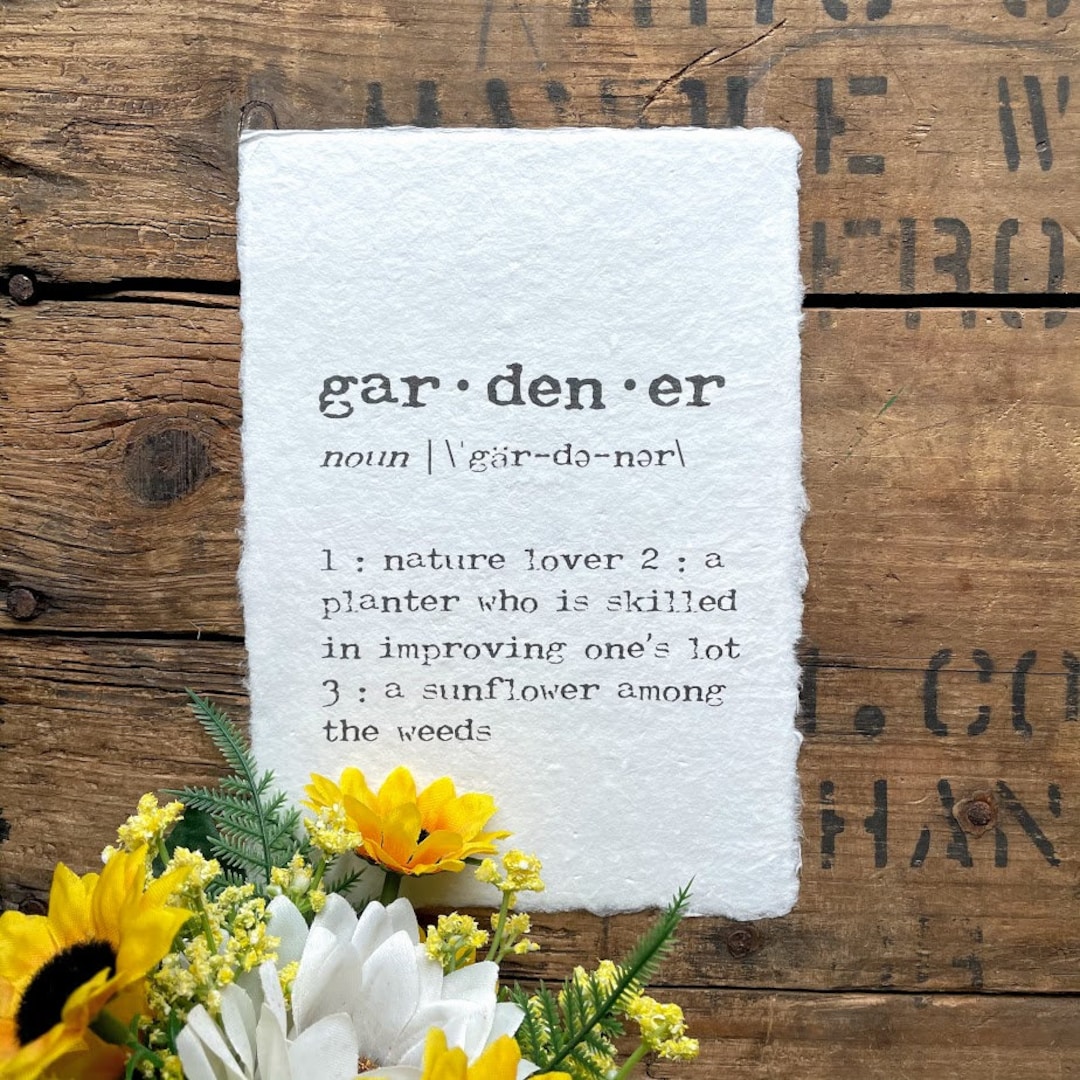 gar·den·er
noun | \ˈgär-də-nər\
1 : nature lover 2 : a
planter who is skilled
in improving one's lot
3 : a sunflower among
the weeds
.CO
HAN